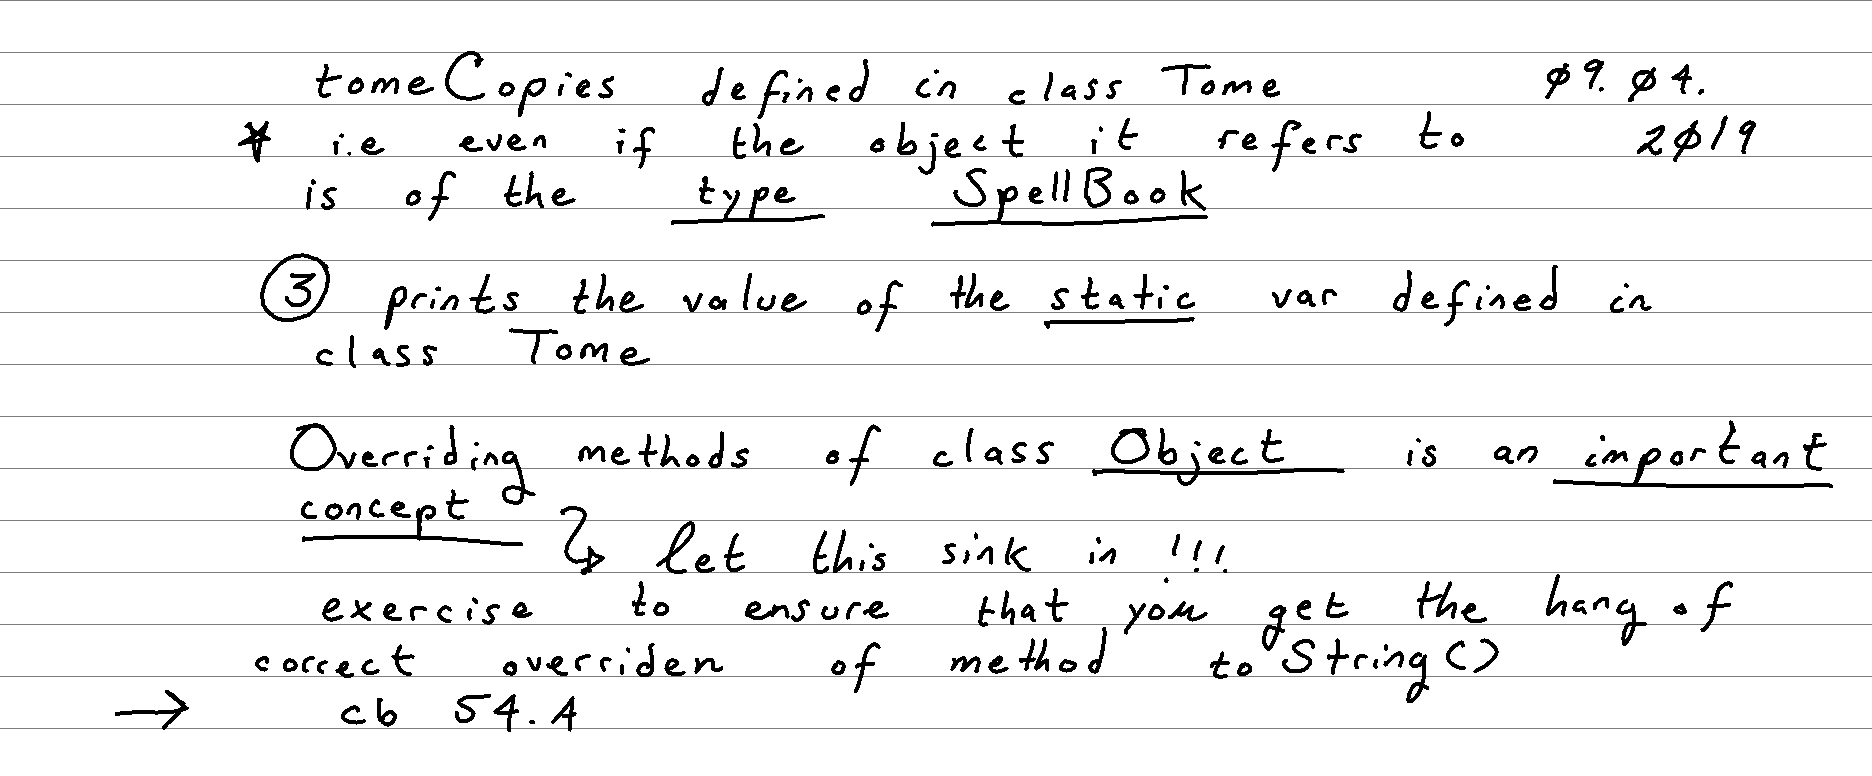 tomeCopies defined in class Tome ø9. ø4.
* i.e even if the object it refers to 2ø19
is of the type SpellBook
③ prints the value of the static var defined in
class Tome
Overriding methods of class Object is an important
concept
↳ let this sink in !!!
exercise to ensure that you get the hang of
correct overriden of method toString()
→ cb 54.A